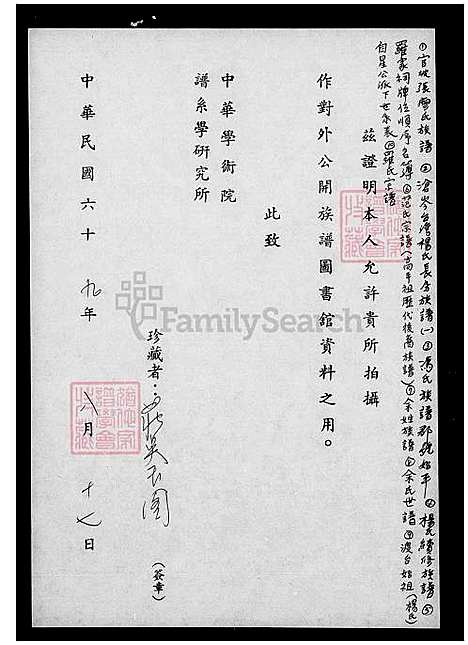 ①官坡張廖氏族譜②滄岑台灣楊氏長房族譜(一)③馮氏族譜郡號始平④楊氏續修族譜⑤
羅家祠牌位順序名簿⑥范氏宗譜(高平祖歷代後裔族譜)⑦余姓族譜⑧余氏世譜⑨渡台始祖(楊氏)
自星公派下世系表⑩羅氏宗譜
茲證明本人允許貴所拍攝
作對外公開族譜圖書館資料之用。
此致
中華學術院
譜系學研究所
珍藏者:莊吳玉圖
(簽章)
中華民國六十九年八月十七日
FamilySearch